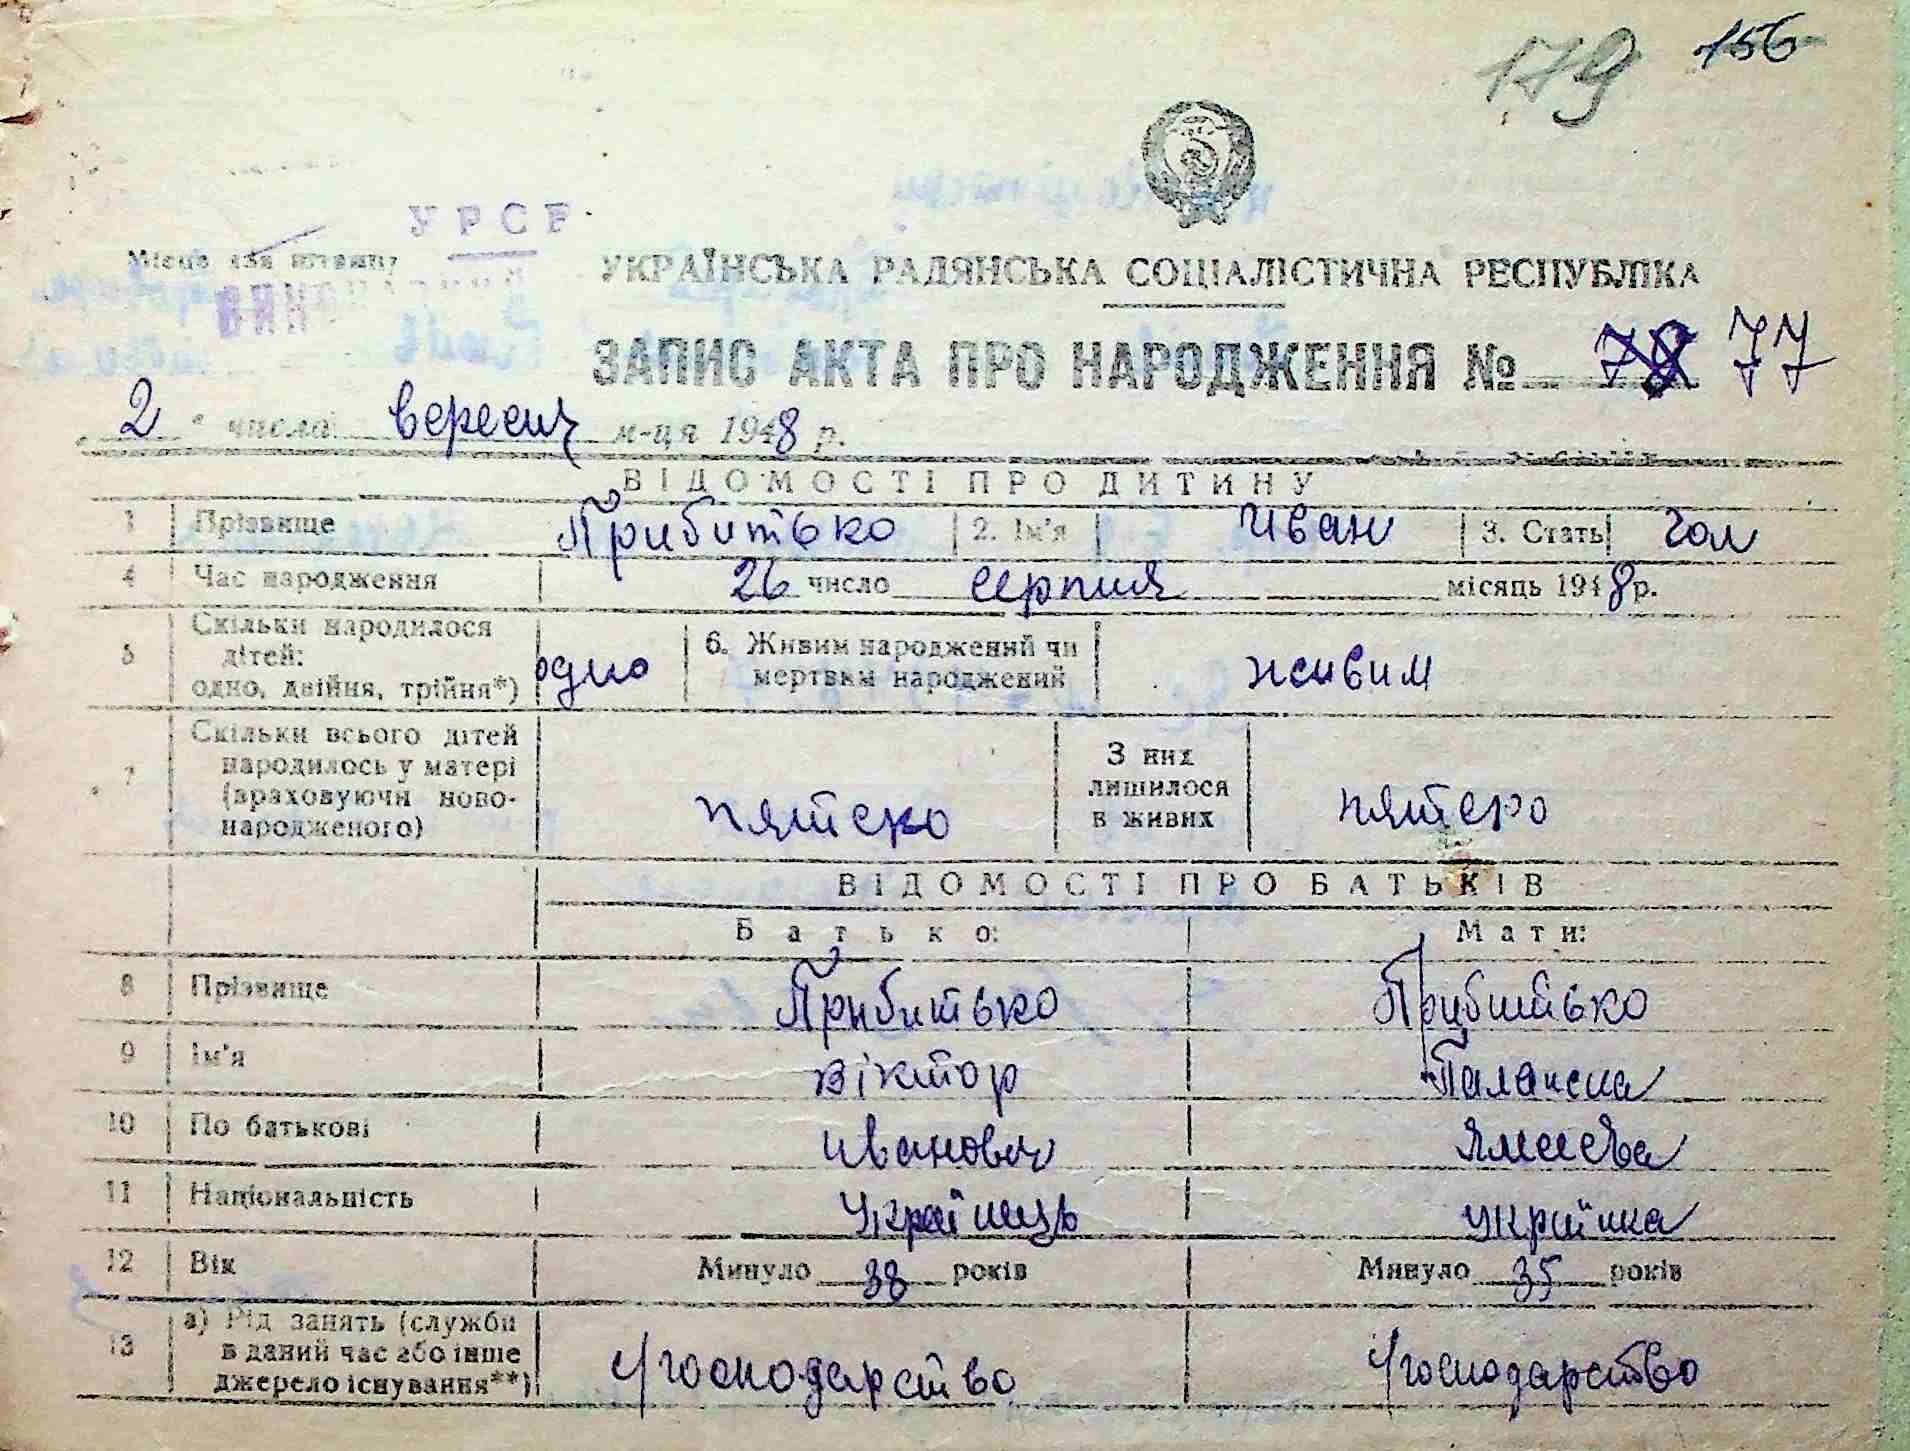 179 156
УРСР
Місце для штампу
УКРАЇНСЬКА РАДЯНСЬКА СОЦІАЛІСТИЧНА РЕСПУБЛІКА
ЗАПИС АКТА ПРО НАРОДЖЕННЯ № 78 77
„ 2 " числа вересня м-ця 1948 р.
ВІДОМОСТІ ПРО ДИТИНУ
1 Прізвище Прибитько 2. Ім'я Иван 3. Стать чол
4 Час народження 26 число серпня місяць 1948 р.
5 Скільки народилося дітей: одно, двійня, трійня*) одно 6. Живим народжений чи мертвим народжений живим
7 Скільки всього дітей народилось у матері (враховуючи ново-народженого) пятеро З них лишилося в живих пятеро
ВІДОМОСТІ ПРО БАТЬКІВ
Батько: Мати:
8 Прізвище Прибитько Прибитько
9 Ім'я Віктор
10 По батькові Иванович
11 Національність Українець українка
12 Вік Минуло 38 років Минуло 35 років
13 а) Рід занять (служби в даний час або інше джерело існування**) У господарство У господарство